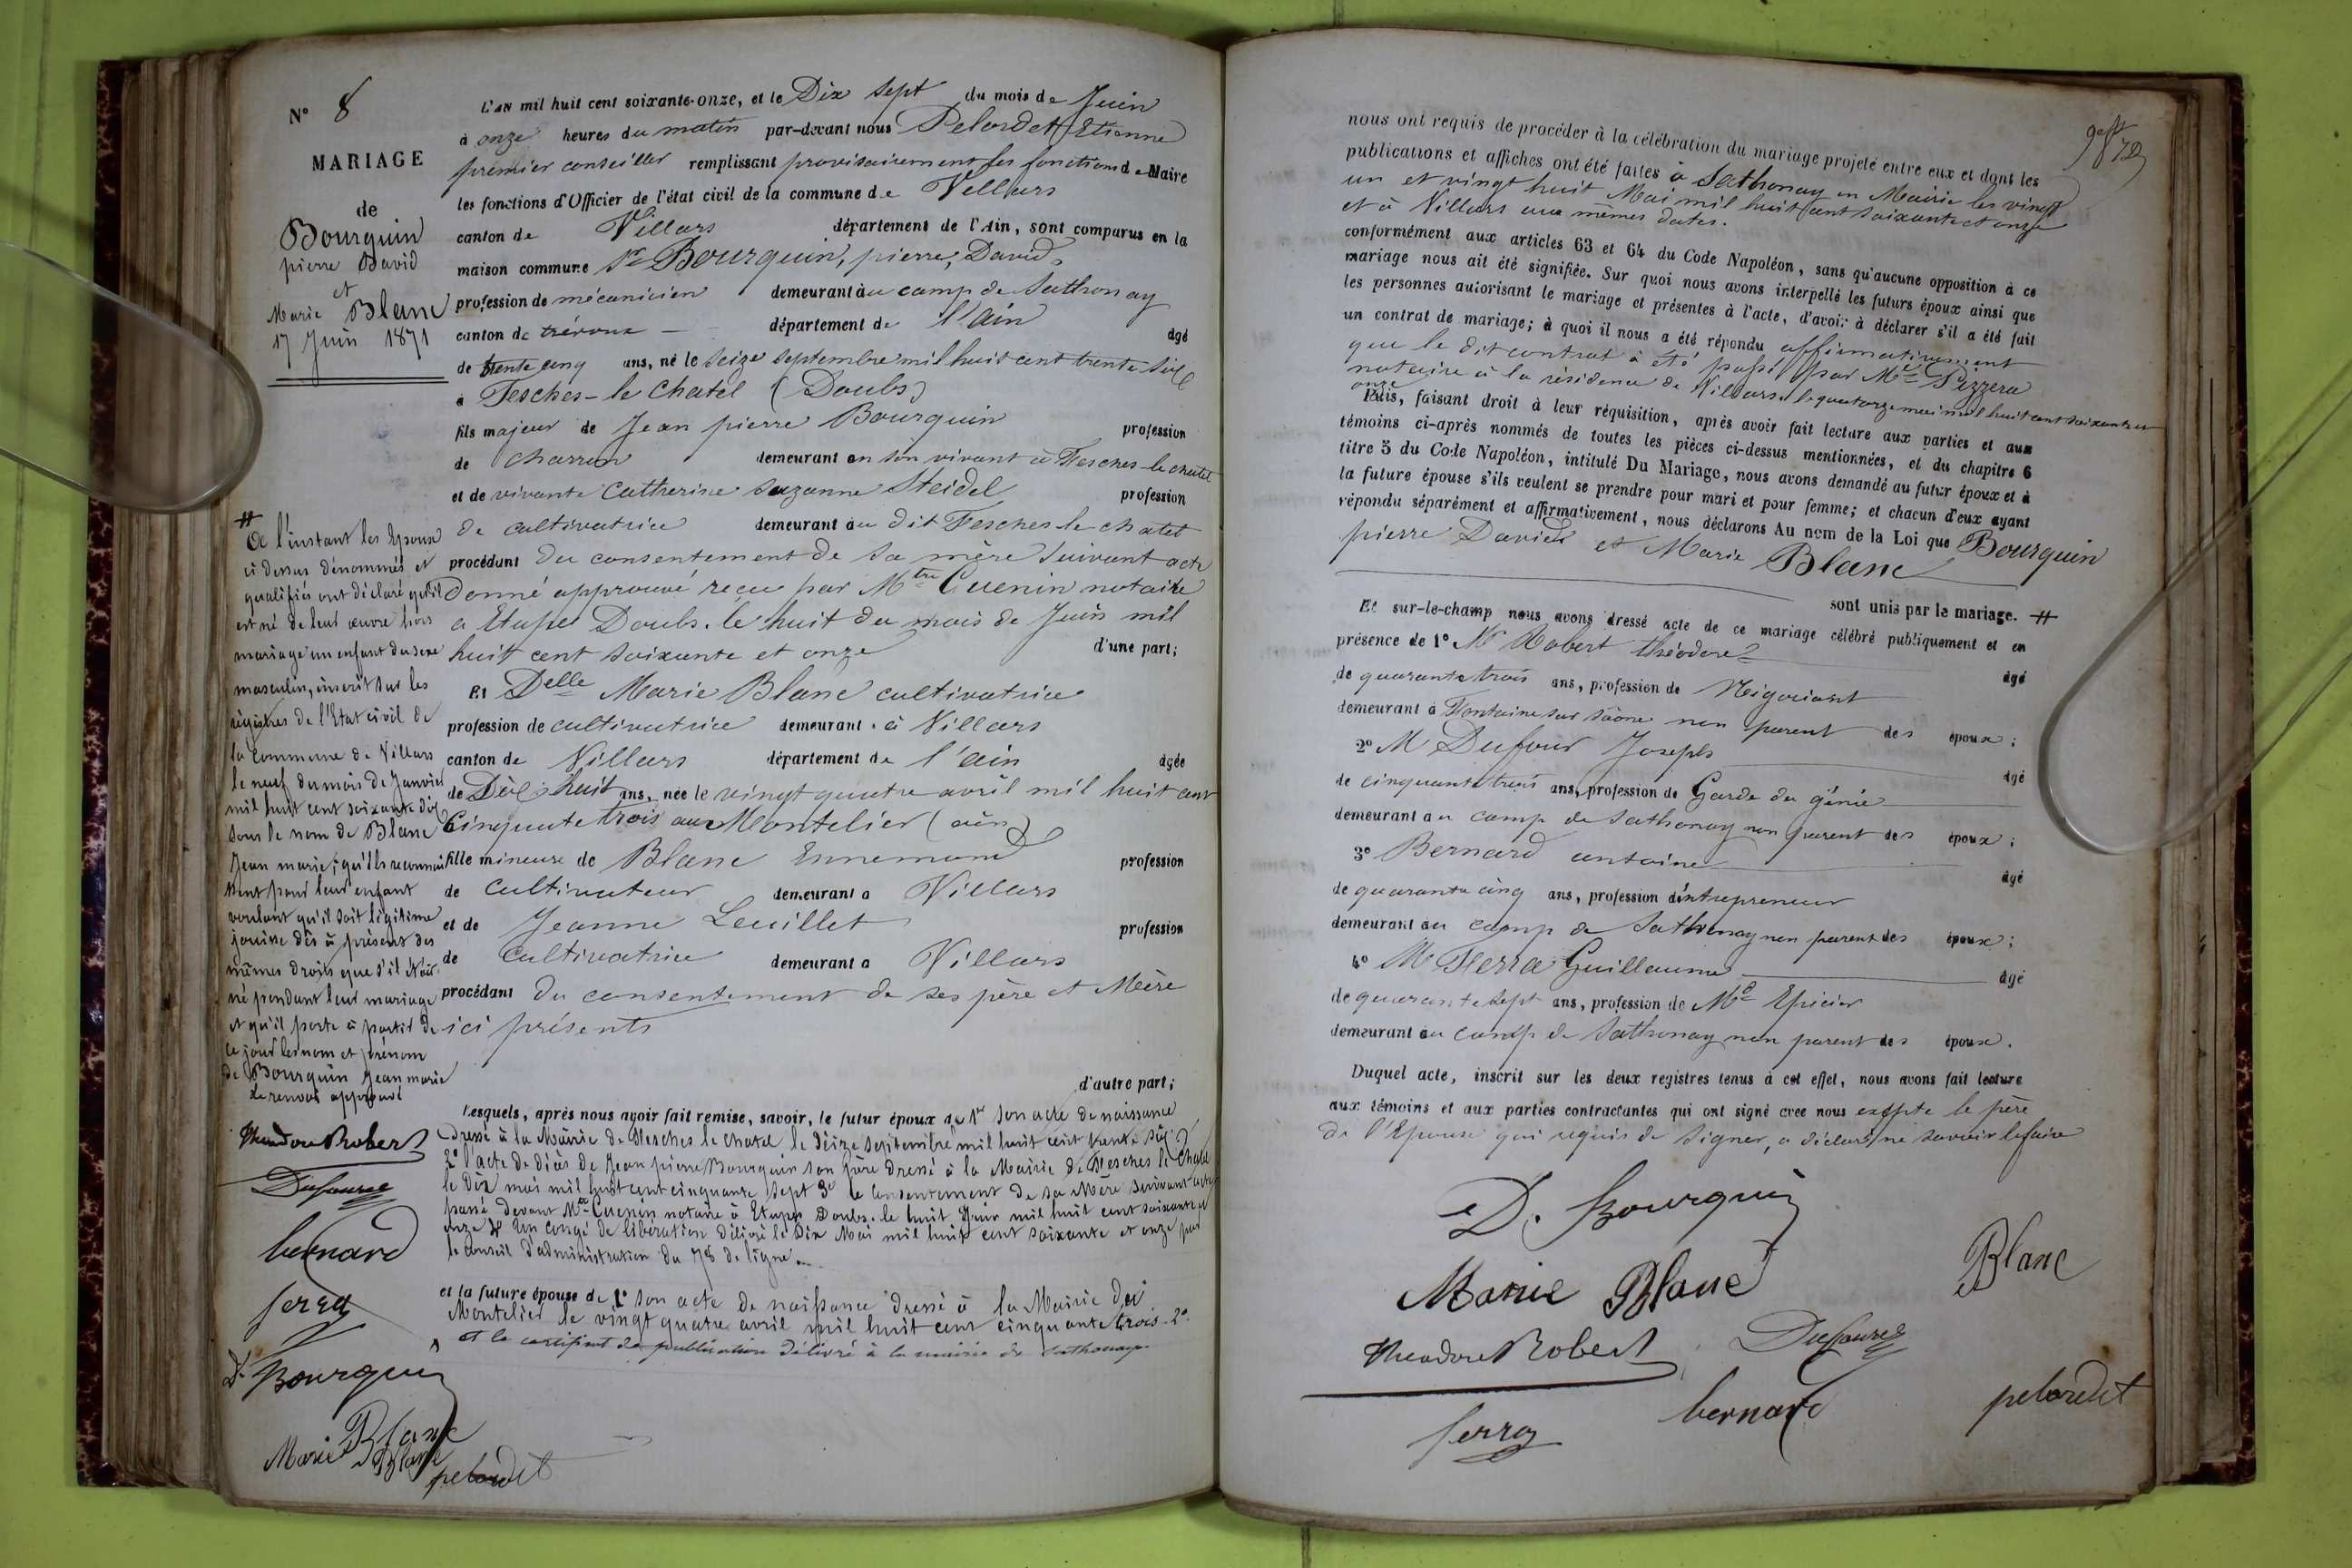 N° 8
MARIAGE
de
Bourquin
pierre David
et
Marie Blanc
17 Juin 1871
L'AN mil huit cent soixante-onze, et le Dix Sept du mois de Juin
à onze heures du matin par-devant nous Pelordet Etienne
premier conseiller remplissant provisoirement les fonctions de Maire
les fonctions d'Officier de l'état civil de la commune de Villars
canton de Villars département de l'Ain, sont comparus en la
maison commune Sr Bourquin, pierre, David
profession de mécanicien demeurant au camp de Sathonay
canton de trévoux département de l'ain âgé
de trente cinq ans, né le Seize septembre mil huit cent trente six
à Fesches-le Chatel (Doubs)
fils majeur de Jean pierre Bourquin profession
de charron demeurant en son vivant à Fesches-le chatel
et de vivante Catherine Suzanne Steidel profession
de cultivatrice demeurant au dit Fesches le chatel
procédant du consentement de sa mère suivant acte
Donné approuvé reçu par Mtre Cuenin notaire
a Etupes Doubs. le huit du mois de Juin mil
huit cent soixante et onze d'une part;
Et Delle Marie Blanc cultivatrice
profession de cultivatrice demeurant à Villars
canton de Villars département de l'ain âgée
de Dix huit ans, née le vingt quatre avril mil huit cent
Cinquante trois au Montelier (ain)
fille mineure de Blanc Ennemond profession
de cultivateur demeurant a Villars
et de Jeanne Leuillet profession
de Cultivatrice demeurant a Villars
procédant du consentement de ses père et Mère
ici présents
d'autre part;
Lesquels, après nous avoir fait remise, savoir, le futur époux de 1° son acte de naissance
dressé à la Mairie de Fesches le chatel le Seize septembre mil huit cent trente six
2° l'acte de décès de Jean pierre Bourquin son père dressé à la Mairie de Fesches le Chatel
le Dix mai mil huit cent cinquante sept 3° le consentement de sa Mère suivant acte
passé devant Me Cuenin notaire à Etupes Doubs. le huit Juin mil huit cent soixante et
onze 4° Un congé de libération délivré le Dix Mai mil huit cent soixante et onze par
le conseil d'administration du 78 de ligne.
et la future épouse de 1° son acte de naissance dressé à la Mairie du
Montelier le vingt quatre avril mil huit cent cinquante trois 2°
et le certificat de publication délivré à la mairie de Sathonay
# A l'instant les Epoux
ci dessus dénommés et
qualifiés ont déclaré qu'il
est né de leur œuvre hors
mariage un enfant du sexe
masculin, inscrit sur les
régistres de l'Etat civil de
la commune de Villars
le neuf du mois de Janvier
mil huit cent soixante dix
sous le nom de Blanc
Jean marie, qu'ils reconnais
sent pour leur enfant
voulant qu'il soit légitime
jouisse dès à présent des
mêmes droits que s'il était
né pendant leur mariage
et qu'il porte à partir de
ce jour les nom et prénom
de Bourquin Jean marie
Le renvoi approuvé
Theodore Robert
Dufour
bernard
ferra
D. Bourquin
Blanc
Marie Blanc
pelordet
nous ont requis de procéder à la célébration du mariage projeté entre eux et dont les
publications et affiches ont été faites à Sathonay en Mairie les vingt
un et vingt huit Mai mil huit cent soixante et onze
et à Villars aux mêmes dates.
conformément aux articles 63 et 64 du Code Napoléon, sans qu'aucune opposition à ce
mariage nous ait été signifiée. Sur quoi nous avons interpellé les futurs époux ainsi que
les personnes autorisant le mariage et présentes à l'acte, d'avoir à déclarer s'il a été fait
un contrat de mariage; à quoi il nous a été répondu affirmativement
que le dit contrat à été passé par Me Pizzera
notaire à la résidence de Villars le quatorze mai mil huit cent soixante et
onze
Puis, faisant droit à leur réquisition, après avoir fait lecture aux parties et aux
témoins ci-après nommés de toutes les pièces ci-dessus mentionnées, et du chapitre 6
titre 5 du Code Napoléon, intitulé Du Mariage, nous avons demandé au futur époux et à
la future épouse s'ils veulent se prendre pour mari et pour femme; et chacun d'eux ayant
répondu séparément et affirmativement, nous déclarons Au nom de la Loi que Bourquin
pierre David et Marie Blanc
sont unis par le mariage. #
Et sur-le-champ nous avons dressé acte de ce mariage célébré publiquement et en
présence de 1° Mr Robert théodore
âgé
de quarante trois ans, profession de Négociant
demeurant à Fontaine sur Saône non parent des époux;
2° M Dufour Joseph
âgé
de cinquante trois ans, profession de Garde du génie
demeurant au camp de Sathonay non parent des époux;
3° Bernard antoine
âgé
de quarante cinq ans, profession d'entrepreneur
demeurant au camp de Sathonay non parent des époux;
4° M Ferra Guillaume
âgé
de quarante sept ans, profession de Md Epicier
demeurant au camp de Sathonay non parent des époux.
Duquel acte, inscrit sur les deux registres tenus à cet effet, nous avons fait lecture
aux témoins et aux parties contractantes qui ont signé avec nous excepté le père
de l'Epouse qui requis de signer, a déclaré ne savoir le faire
D. Bourquin
Marie Blanc Blanc
Theodore Robert Dufour
ferra bernard pelordet